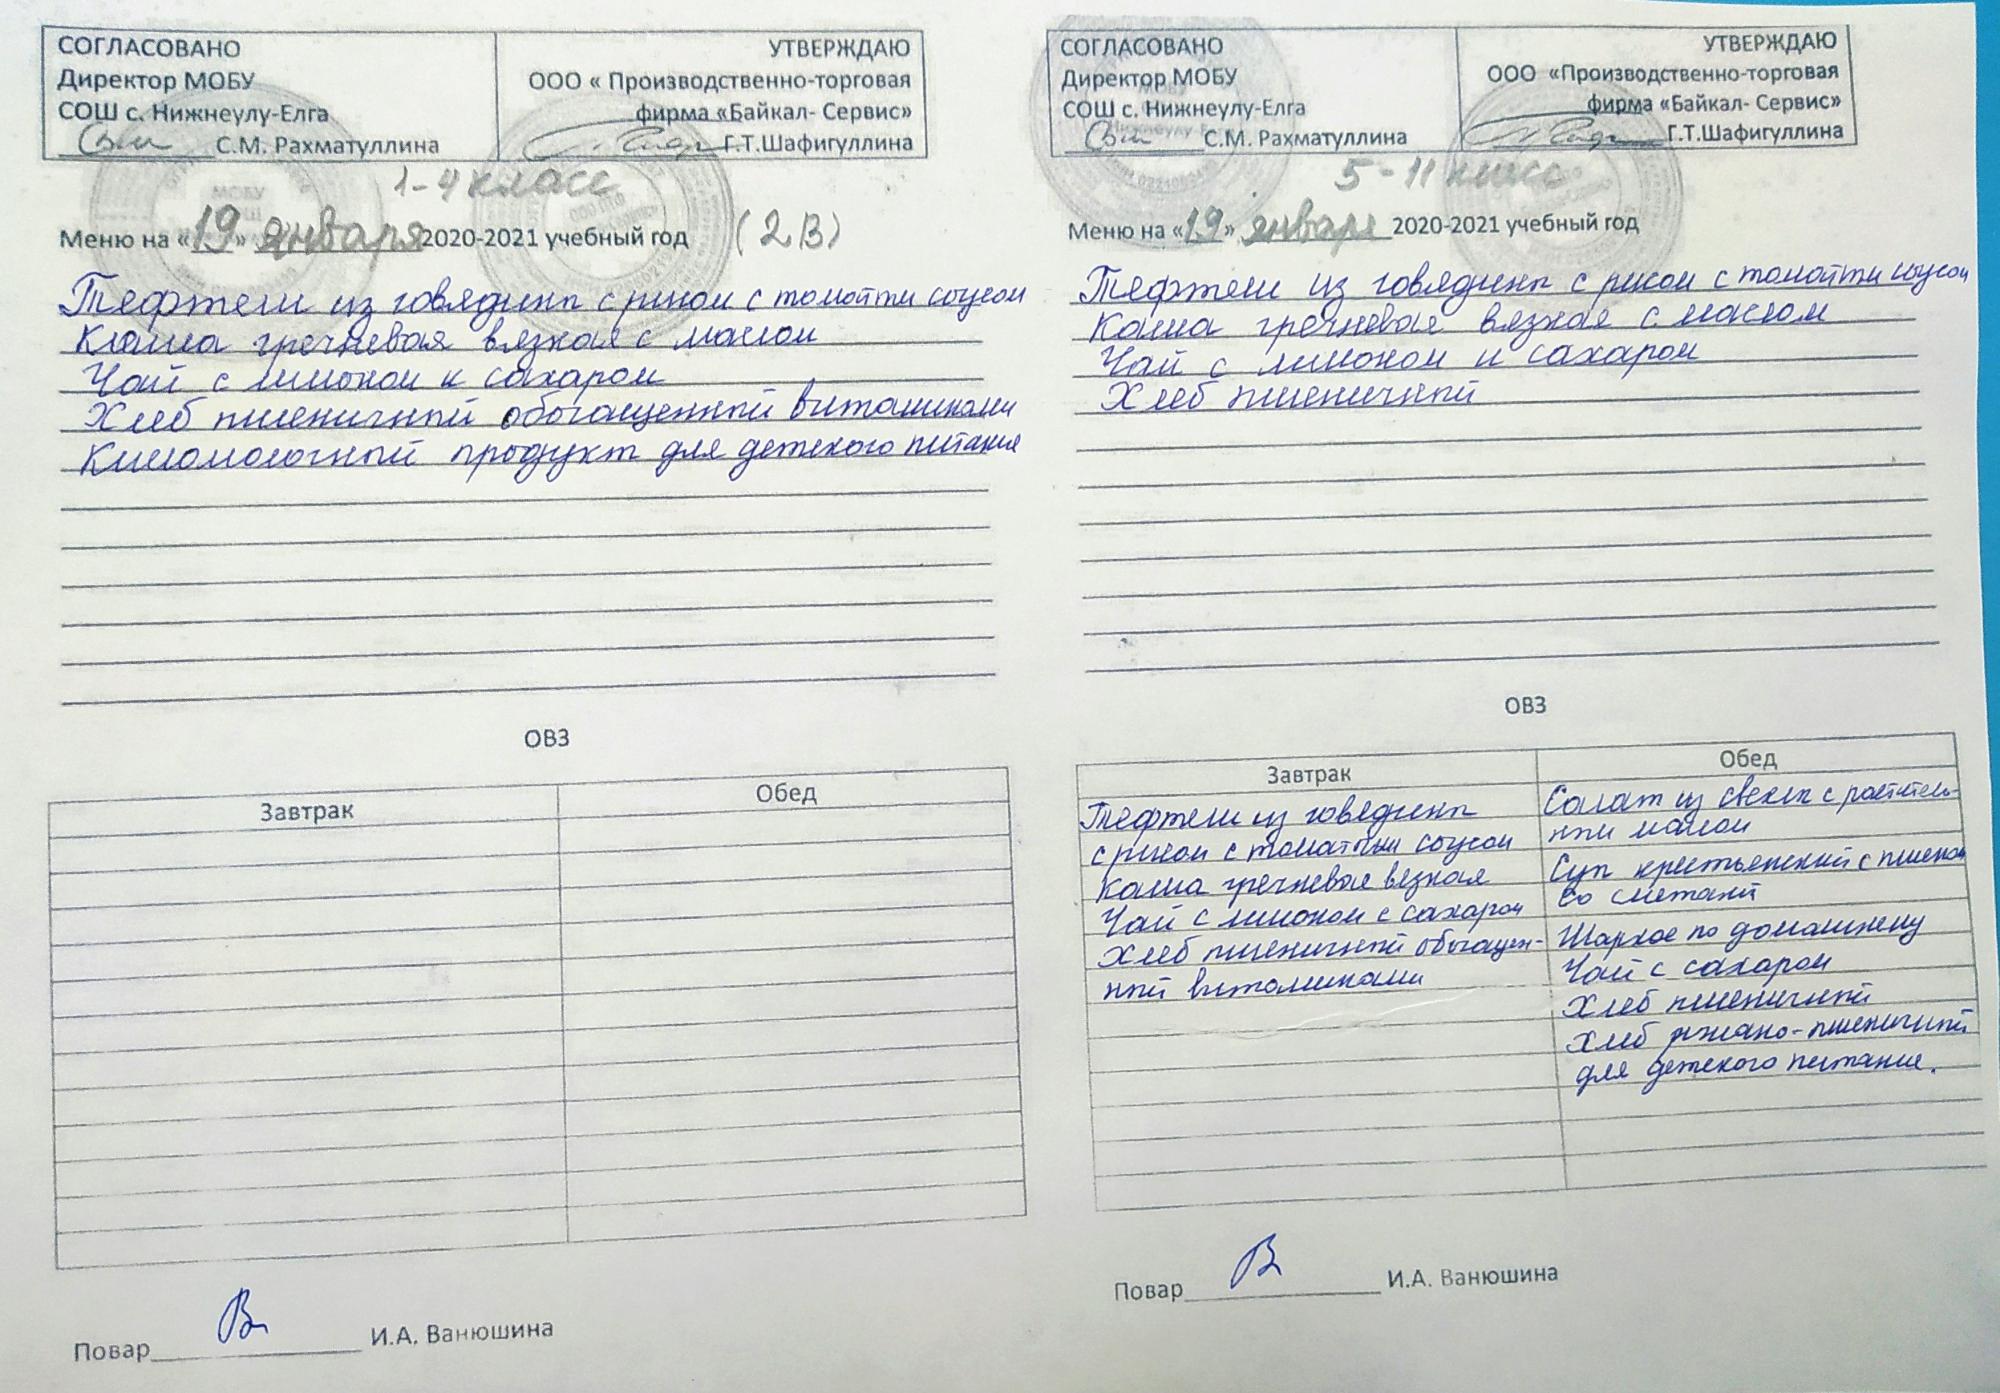 СОГЛАСОВАНО
Директор МОБУ
СОШ с. Нижнеулу-Елга
С.М. Рахматуллина
УТВЕРЖДАЮ
ООО « Производственно-торговая
фирма «Байкал- Сервис»
Г.Т.Шафигуллина
1-4 класс
Меню на «19» января 2020-2021 учебный год (2В)
Тефтели из говядины с рисом с томатным соусом
Каша гречневая вязкая с маслом
Чай с лимоном и сахаром
Хлеб пшеничный обогащенный витаминами
Кисломолочный продукт для детского питания
ОВЗ
Завтрак
Обед
Повар И.А. Ванюшина
СОГЛАСОВАНО
Директор МОБУ
СОШ с. Нижнеулу-Елга
С.М. Рахматуллина
УТВЕРЖДАЮ
ООО «Производственно-торговая
фирма «Байкал- Сервис»
Г.Т.Шафигуллина
5-11 класс
Меню на «19» января 2020-2021 учебный год
Тефтели из говядины с рисом с томатным соусом
Каша гречневая вязкая с маслом
Чай с лимоном и сахаром
Хлеб пшеничный
ОВЗ
Завтрак
Тефтели из говядины
с рисом с томатным соусом
Каша гречневая вязкая
Чай с лимоном с сахаром
Хлеб пшеничный обогащен-
ный витаминами
Обед
Салат из свеклы с раститель-
ным маслом
Суп крестьянский с пшеном
со сметаной
Жаркое по домашнему
Чай с сахаром
Хлеб пшеничный
Хлеб ржано-пшеничный
для детского питания.
Повар И.А. Ванюшина